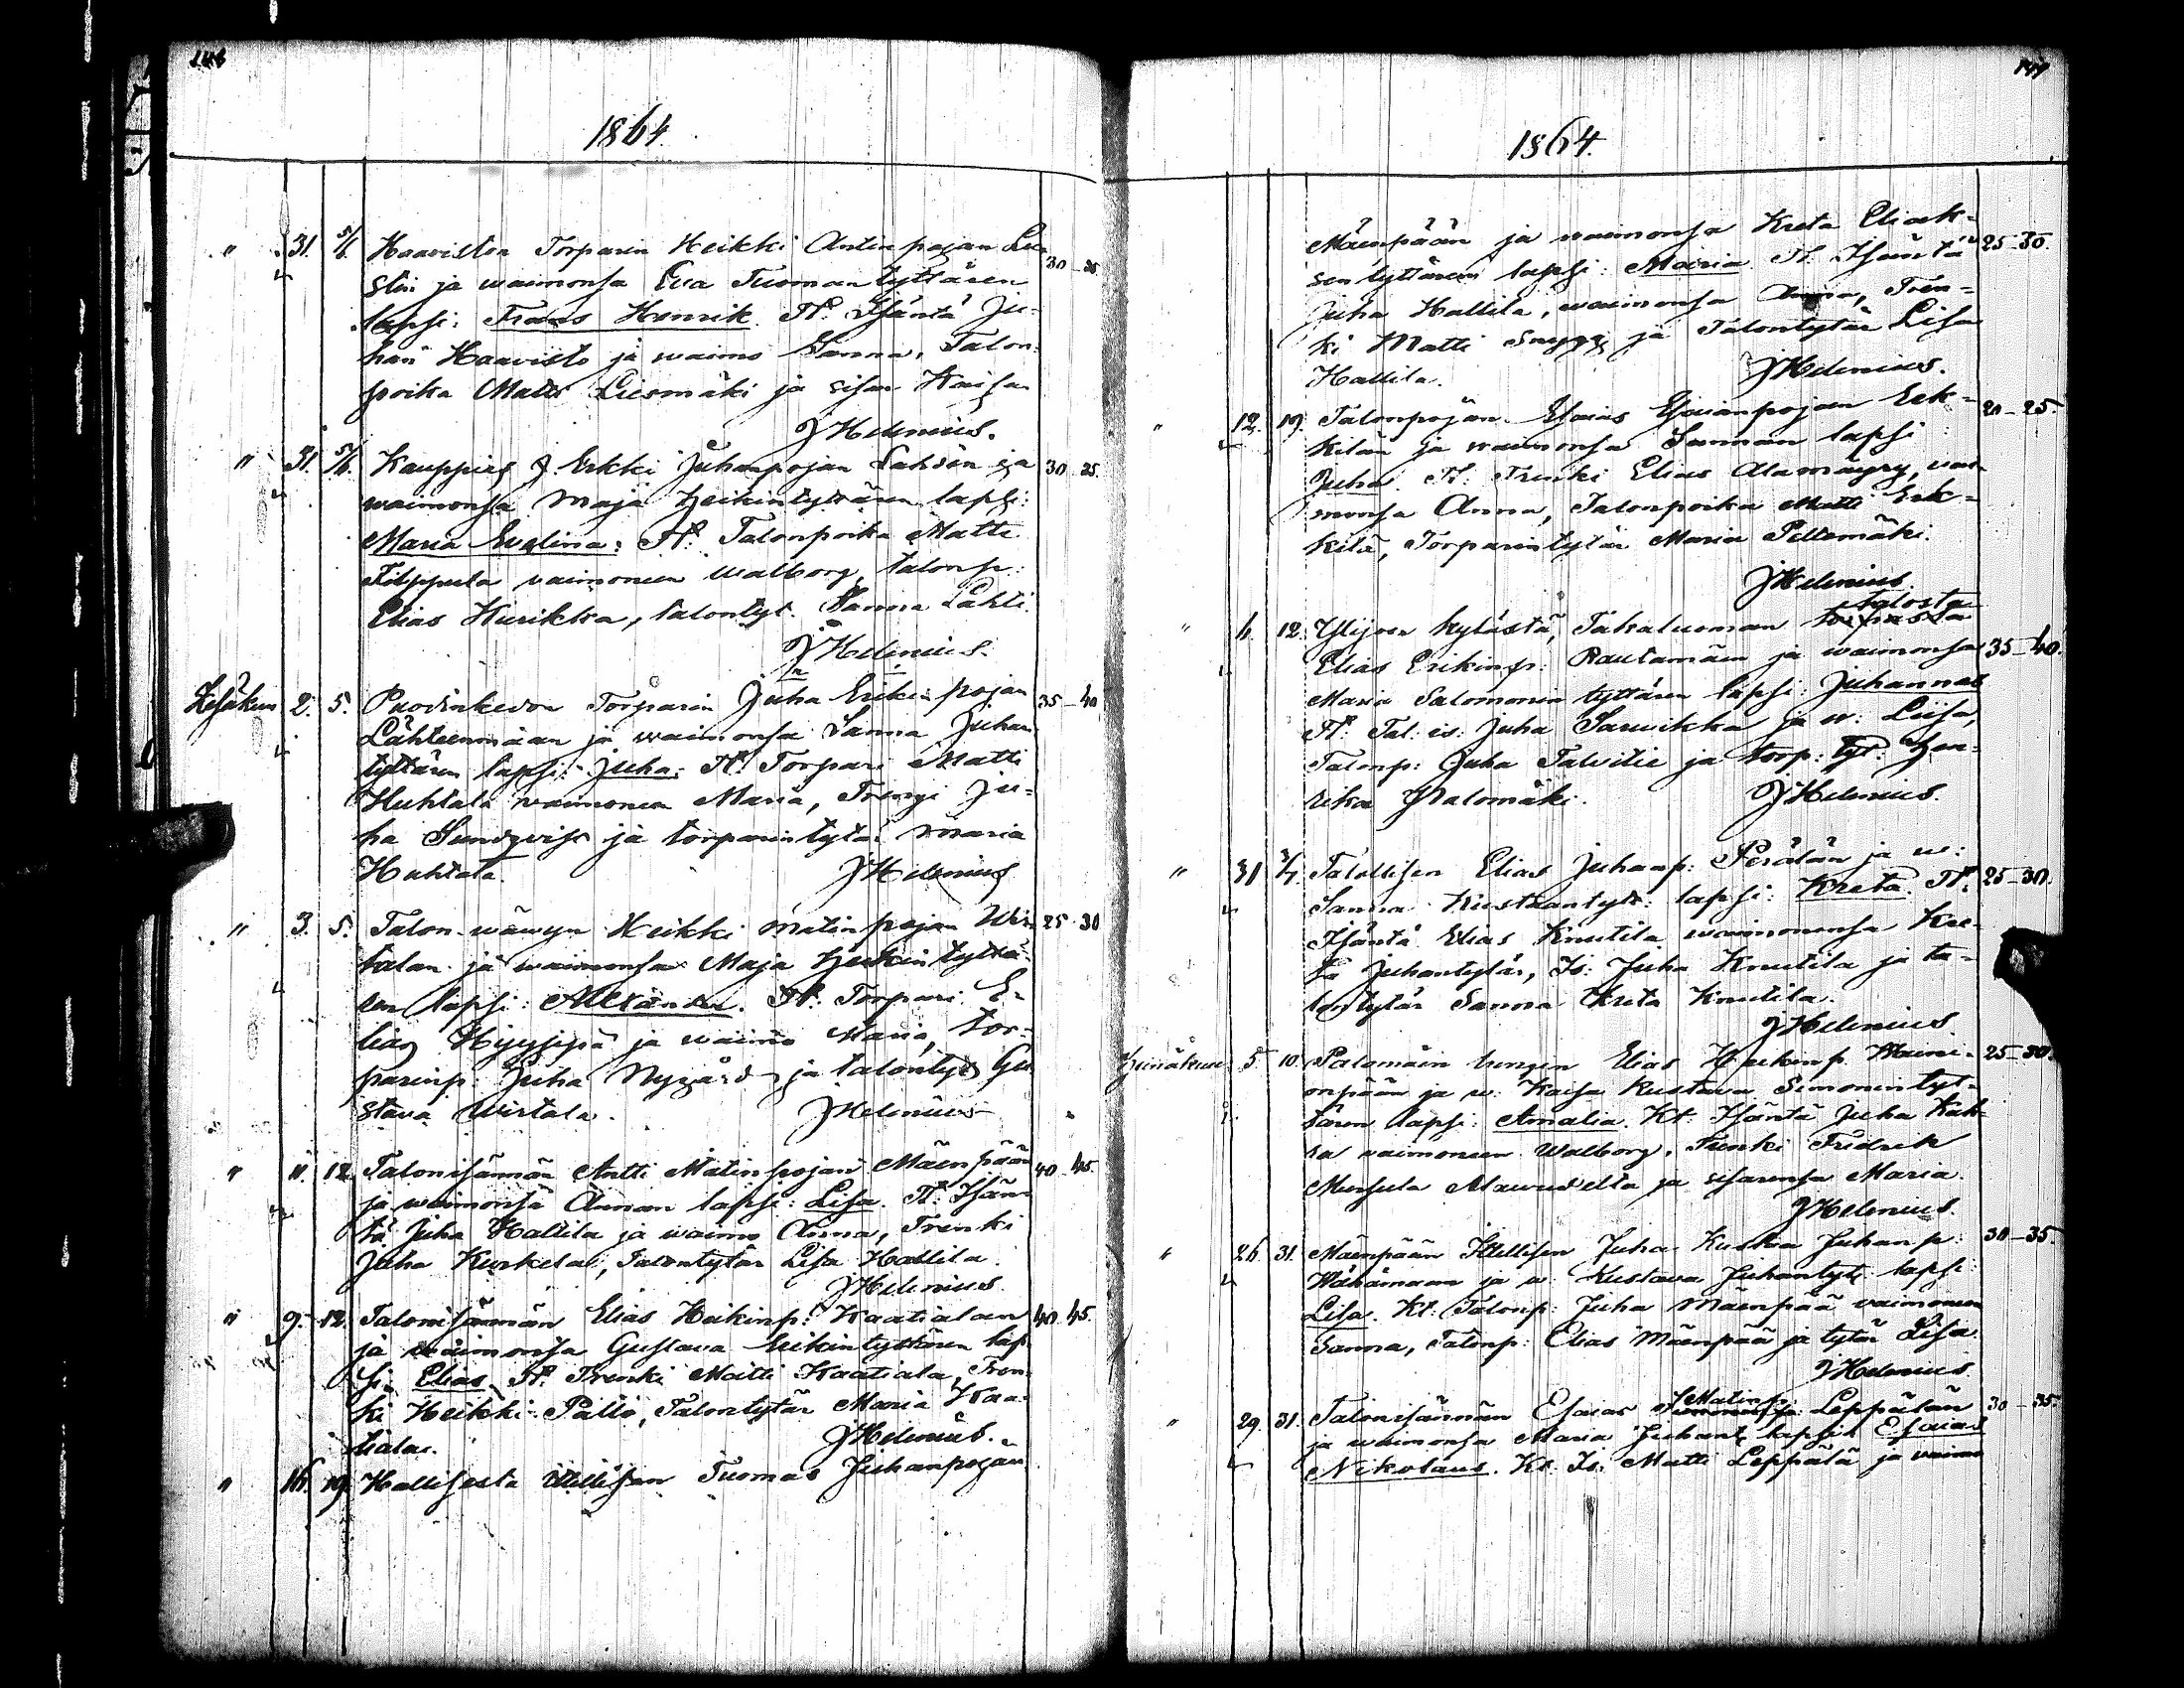 148
1864.
" 31. 5/6. Haaviston Torparin Heikki Antin pojan Lu- 30-35
stin ja waimonsa Eva Tuoman tyttären
lapsi: Frans Henrik. Tt. Isäntä Ju-
han Haavisto ja waimo Sanna, Talon-
poika Matts Liesmäki ja sisar Kaisa
JHelenius.
" 31. 5/6. Kauppias J. Erkki Juhanpojan Lahden ja 30-25.
waimonsa Maja Heikintyttären lapsi:
Maria Evelina: Tt: Talonpoika Matti
Filppula vaimoneen Walborg, talonp:
Elias Hiirikka, talontyt. Sanna Lahti.
JHelenius.
Kesäkuu 2. 5. Torparin Juha Erikin pojan 35-40
Lähteenmäan ja waimonsa Sanna Juhan
tyttären lapsi: Juha: Tt: Torpari Matti
Huhtala waimonen Maria, Trengi Ju-
ha Sundqvist ja torparintytär Maria
Huhtala. JHelenius
" 3. 5. Talon-wäwyn Heikki Matin pojan Wir- 25-30
talan ja waimonsa Maja Heikin tyttä-
ren lapsi: Alexander. Tt: Torpari E-
lias Hyyppä ja waimo Maria, tor-
parinp: Juha Nygård ja talontyt Gu
stava Wirtala. JHelenius
" 11. 12. Talonisännän Antti Matinpojan Mäenpään 40-45.
ja waimonsa Annan lapsi: Lisa. Tt: Isän-
tä Juha Hallila ja waimo Anna, Trenki
Juha Kurkela, Talontytär Lisa Hallila.
JHelenius.
" 9. 12. Talonisännän Elias Heikinp: Kaatialan 40-45.
ja waimonsa Gustava Erikintyttären lap-
si: Elias. Tt. Trenki Matti Kaatiala, Tren-
ki Heikki Pallo, Talontytär Maria Kaa-
tiala. JHelenius.
" 16. 19. Hallilasta Itellisen Tuomas Juhanpojan
149
1864.
Mäenpään ja waimonsa Kreta Eliak- 25-30.
sen tyttären lapsi: Maria. Tt. Isäntä
Juha Hallila, waimonsa Anna, Tren-
ki Matti ja Talontytär Lisa
Hallila. JHelenius.
" 12. 19. Talonpojan Esaias Esaianpojan Erk- 20-25.
kilän ja waimonsa Sannan lapsi
Juha. Tt: Trenki Elias Alamäyry, vai-
monsa Anna, Talonpoika Matti Erk-
kilä, Torparintytär Maria Peltomäki.
JHelenius.
" 6. 12. Ylijoen kylästä, Takaluoman torpasta talosta
Elias Erikinp: Rautamäen ja waimonsa 35-40.
Maria Salomonin tyttären lapsi: Juhannes
Tt. Tal: is: Juha Sarwikka ja w: Liisa,
Talonp: Juha Talvitie ja torp: tyt: Hen-
rika Palomäki. JHelenius.
" 31 3/7. Talollisen Elias Juhanp: Perälän ja w: 25-30.
Sanna Kustaantyt: lapsi: Kreta. Tt:
Isäntä Elias Knutila waimonensa Kre-
ta Juhantytär, Is: Juha Knutila ja ta-
lontytär Sanna Kreta Knutila.
JHelenius.
Heinäkuu 5. 10. Palomäen Elias Heikinp. 25-30.
onpään ja w: Kaisa Kustava Simonin tyt-
tären lapsi: Amalia. Kt: Isäntä Juha Kak-
sa vaimoneen Walborg, Trenki Fredrik
Mursula Alawudelta ja sisarensa Maria.
JHelenius.
" 26 31. Mäenpään Itellisen Juha Kustaa Juhan p: 30-35.
Wähämaan ja w: Kustava Juhantyt: lapsi:
Lisa. Kt: Talonp: Juha Mäenpää vaimoneen
Sanna, Talonp: Elias Mäenpää ja tytär Lisa
JHelenius.
" 29. 31. Talonisännän Esaias Matinp: Leppälän 30-35.
ja waimonsa Maria Juhant: lapsi: Esaias
Nikolaus. Kt: Is: Matti Leppälä ja vaimo